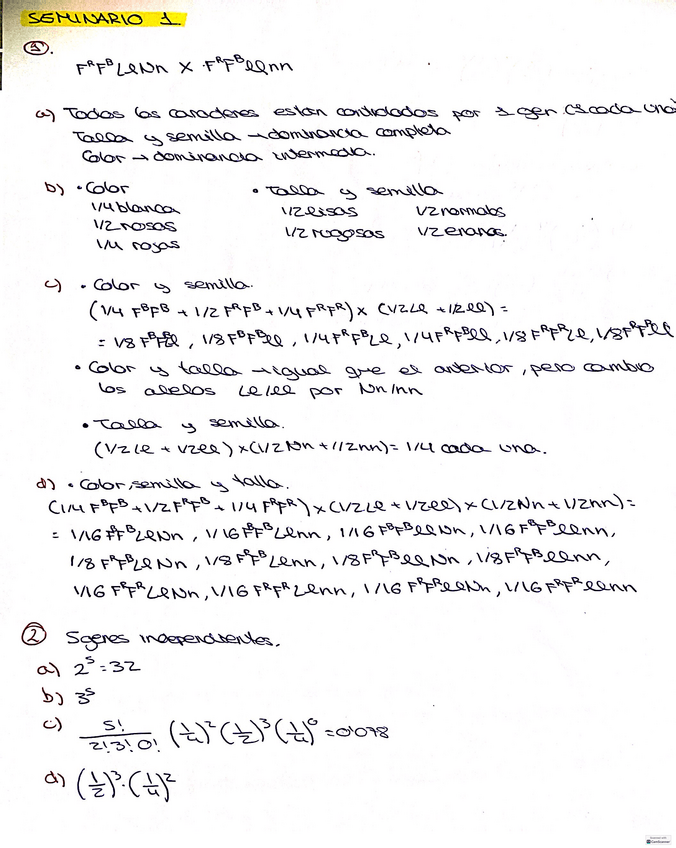 SEMINARIO 1
1.
FᴿFᴮLlNn x FᴿFᴮllnn
a) Todos los caracteres están controlados por 1 gen (1 cada uno)
Talla y semilla → dominancia completa
Color → dominancia intermedia.
b) • Color • Talla y semilla
1/4 blanca 1/2 lisas 1/2 normales
1/2 rosas 1/2 rugosas 1/2 enanas.
1/4 rojas
c) • Color y semilla.
(1/4 FᴮFᴮ + 1/2 FᴿFᴮ + 1/4 FᴿFᴿ) x (1/2 Ll + 1/2 ll) =
= 1/8 FᴮFᴮLl, 1/8 FᴮFᴮll, 1/4 FᴿFᴮLl, 1/4 FᴿFᴮll, 1/8 FᴿFᴿLl, 1/8 FᴿFᴿll
• Color y talla → igual que el anterior, pero cambio
los alelos Ll/ll por Nn/nn
• Talla y semilla.
(1/2 Ll + 1/2 ll) x (1/2 Nn + 1/2 nn) = 1/4 cada una.
d) • Color, semilla y talla.
(1/4 FᴮFᴮ + 1/2 FᴿFᴮ + 1/4 FᴿFᴿ) x (1/2 Ll + 1/2 ll) x (1/2 Nn + 1/2 nn) =
= 1/16 FᴮFᴮLlNn, 1/16 FᴮFᴮLlnn, 1/16 FᴮFᴮllNn, 1/16 FᴮFᴮllnn,
1/8 FᴿFᴮLlNn, 1/8 FᴿFᴮLlnn, 1/8 FᴿFᴮllNn, 1/8 FᴿFᴮllnn,
1/16 FᴿFᴿLlNn, 1/16 FᴿFᴿLlnn, 1/16 FᴿFᴿllNn, 1/16 FᴿFᴿllnn
2 5 genes independientes.
a) 2⁵ = 32
b) 3⁵
c) 5!/(2!3!0!) (1/4)² (1/2)³ (1/4)⁰ = 0'078
d) (1/2)³ · (1/4)²
CamScanner